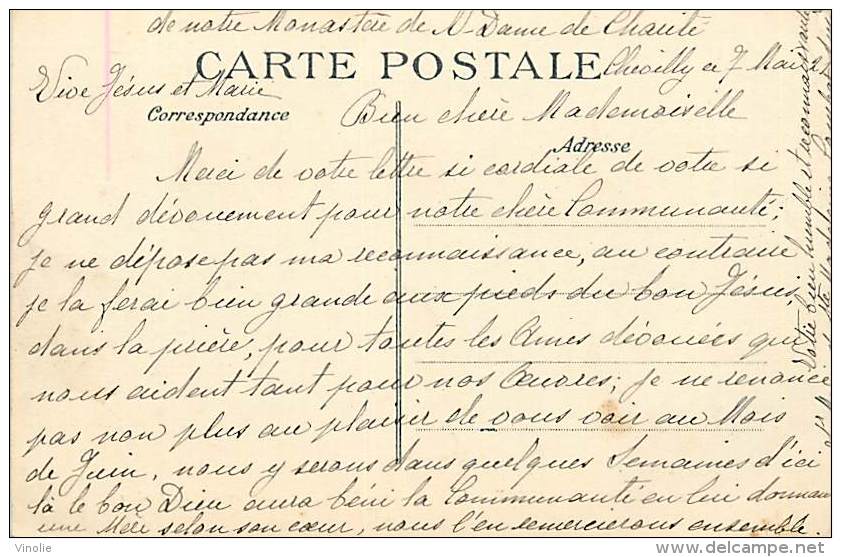 de notre Monastère de N Dame de Charité
CARTE POSTALE
Chevilly ce 7 Mai 21
Vive Jésus et Marie
Correspondance
Bien chère Mademoiselle
Adresse
Merci de votre lettre si cordiale de votre si
grand dévouement pour notre chère Communauté;
je ne dépose pas ma reconnaissance, au contraire
je la ferai bien grande aux pieds du bon Jésus,
dans la prière, pour toutes les Ames dévouées qui
nous aident tant pour nos Œuvres; je ne renonce
pas non plus au plaisir de vous voir au Mois
de Juin, nous y serons dans quelques Semaines d'ici
là le bon Dieu aura béni la Communauté en lui donnant
une Mère selon son cœur, nous l'en remercierons ensemble.
Votre bien humble et reconnaissante
Ste Madeleine
Vinolie
delcampe.net